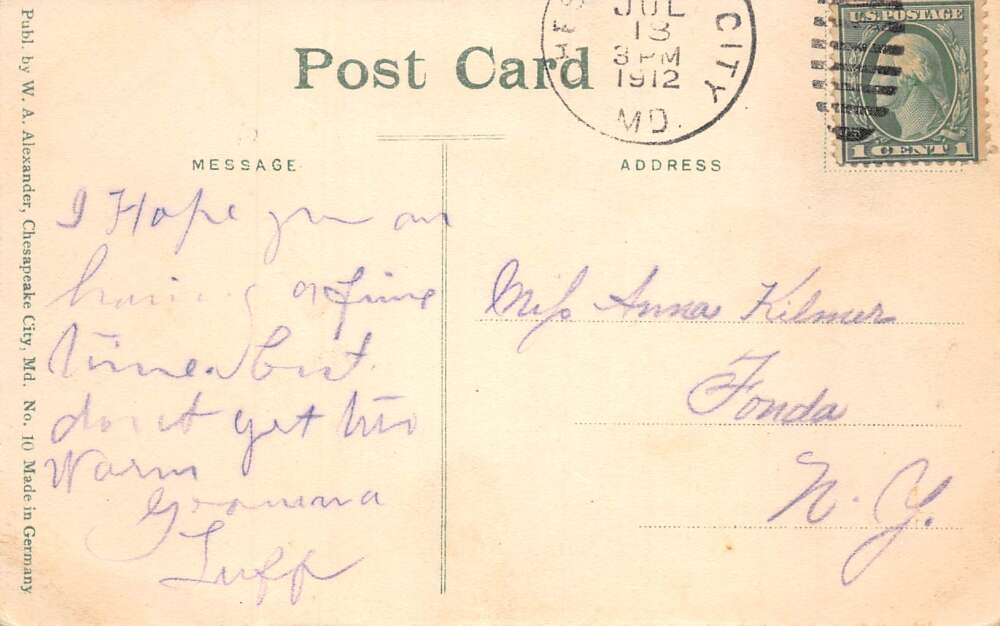 Post Card
JUL
13
3 PM
1912
CITY
MD.
U.S. POSTAGE
1 CENT 1
MESSAGE
ADDRESS
I Hope you are
having a fine
time but
don't get too
Warm
Gramma
Tupp
Miss Anna Kilmer
Fonda
N. Y.
Publ. by W. A. Alexander, Chesapeake City, Md. No. 10 Made in Germany